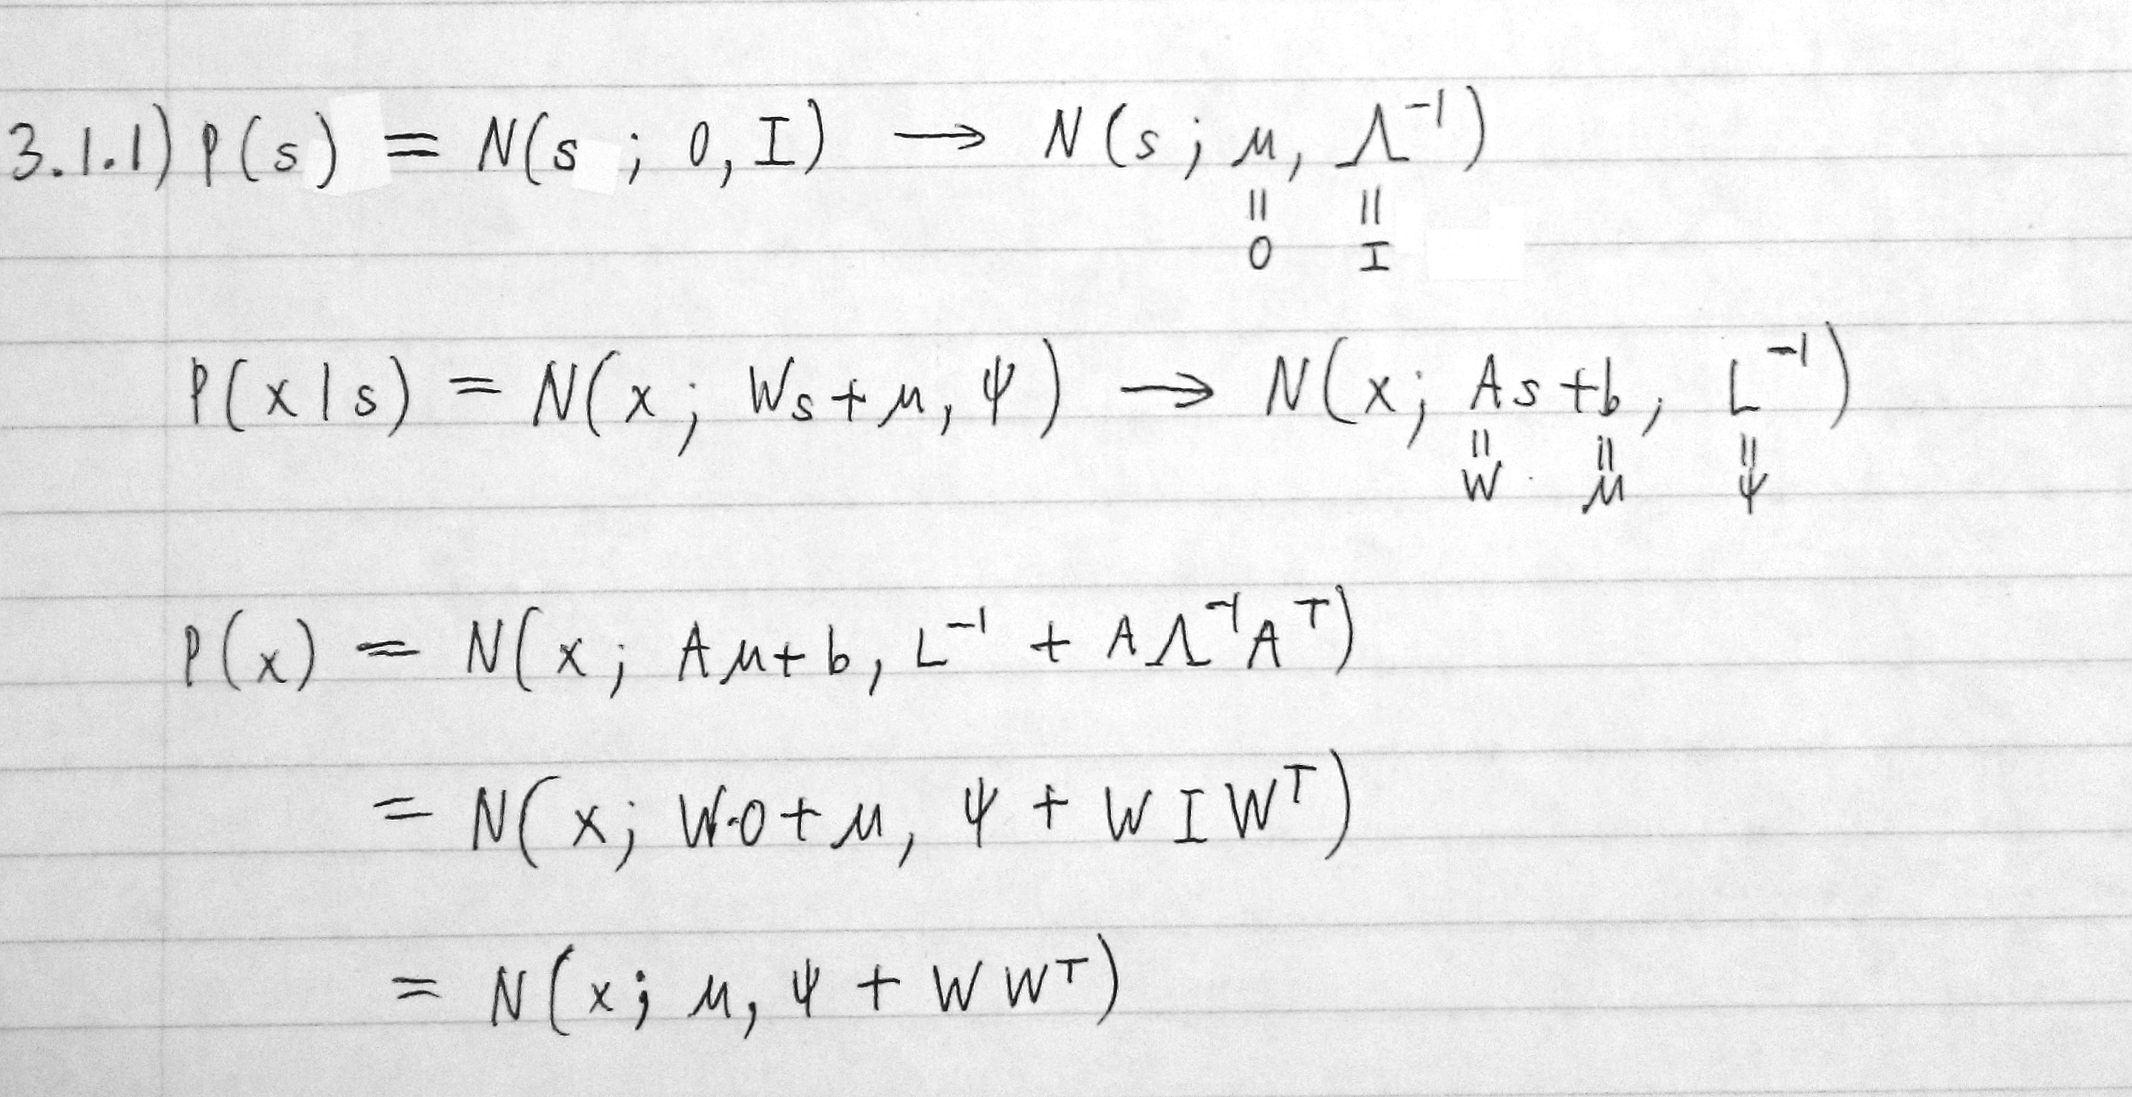 3.1.1) P(s) = N(s ; 0, I) → N(s; μ, Λ⁻¹)
= =
0 I
P(x|s) = N(x; Ws+μ, Ψ) → N(x; As+b, L⁻¹)
= = =
W μ Ψ
P(x) = N(x; Aμ+b, L⁻¹ + AΛ⁻¹Aᵀ)
= N(x; W·0+μ, Ψ + WIWᵀ)
= N(x; μ, Ψ + WWᵀ)